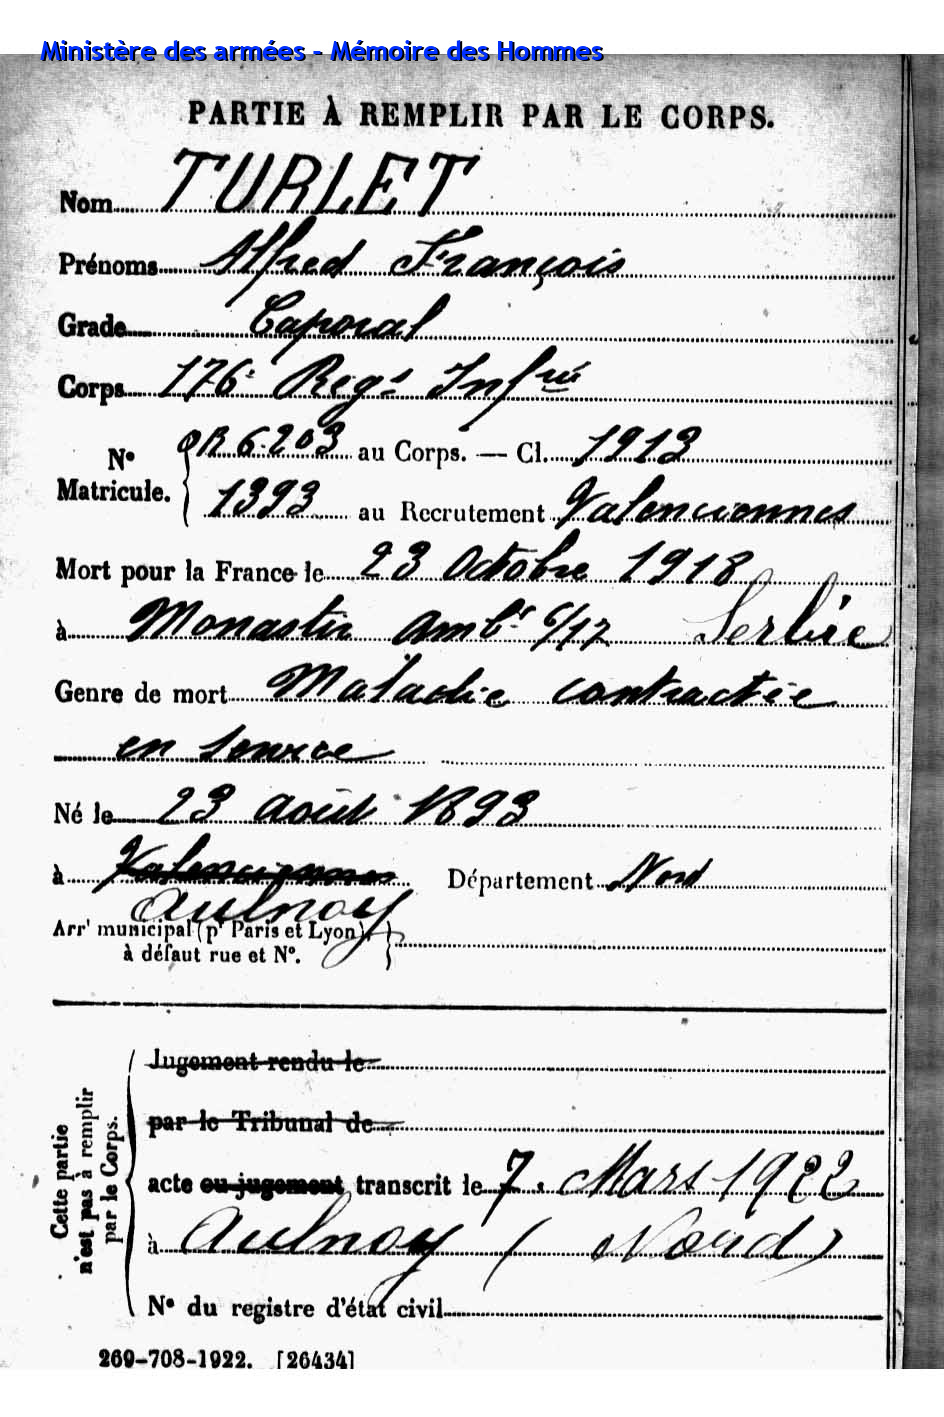 Ministère des armées - Mémoire des Hommes
PARTIE À REMPLIR PAR LE CORPS.
Nom TURLET
Prénoms Alfred François
Grade Caporal
Corps 176e Regt Infrie
N° Matricule. R 6203 au Corps. — Cl. 1913
1393 au Recrutement Valenciennes
Mort pour la France le 23 Octobre 1918
à Monastir Ambce 6/17 Serbie
Genre de mort Maladie contractée
en service
Né le 23 août 1893
à Valenciennes Département Nord
Aulnoy
Arrt municipal (pr Paris et Lyon),
à défaut rue et N°.
Cette partie n'est pas à remplir par le Corps.
Jugement rendu le
par le Tribunal de
acte ou jugement transcrit le 7 Mars 1922
à Aulnoy (Nord)
N° du registre d'état civil
269-708-1922. [26434]